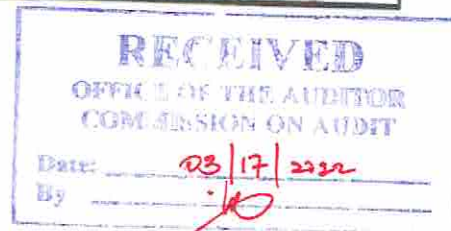 RECEIVED
OFFICE OF THE AUDITOR
COMMISSION ON AUDIT
Date: 03/17/2022
By